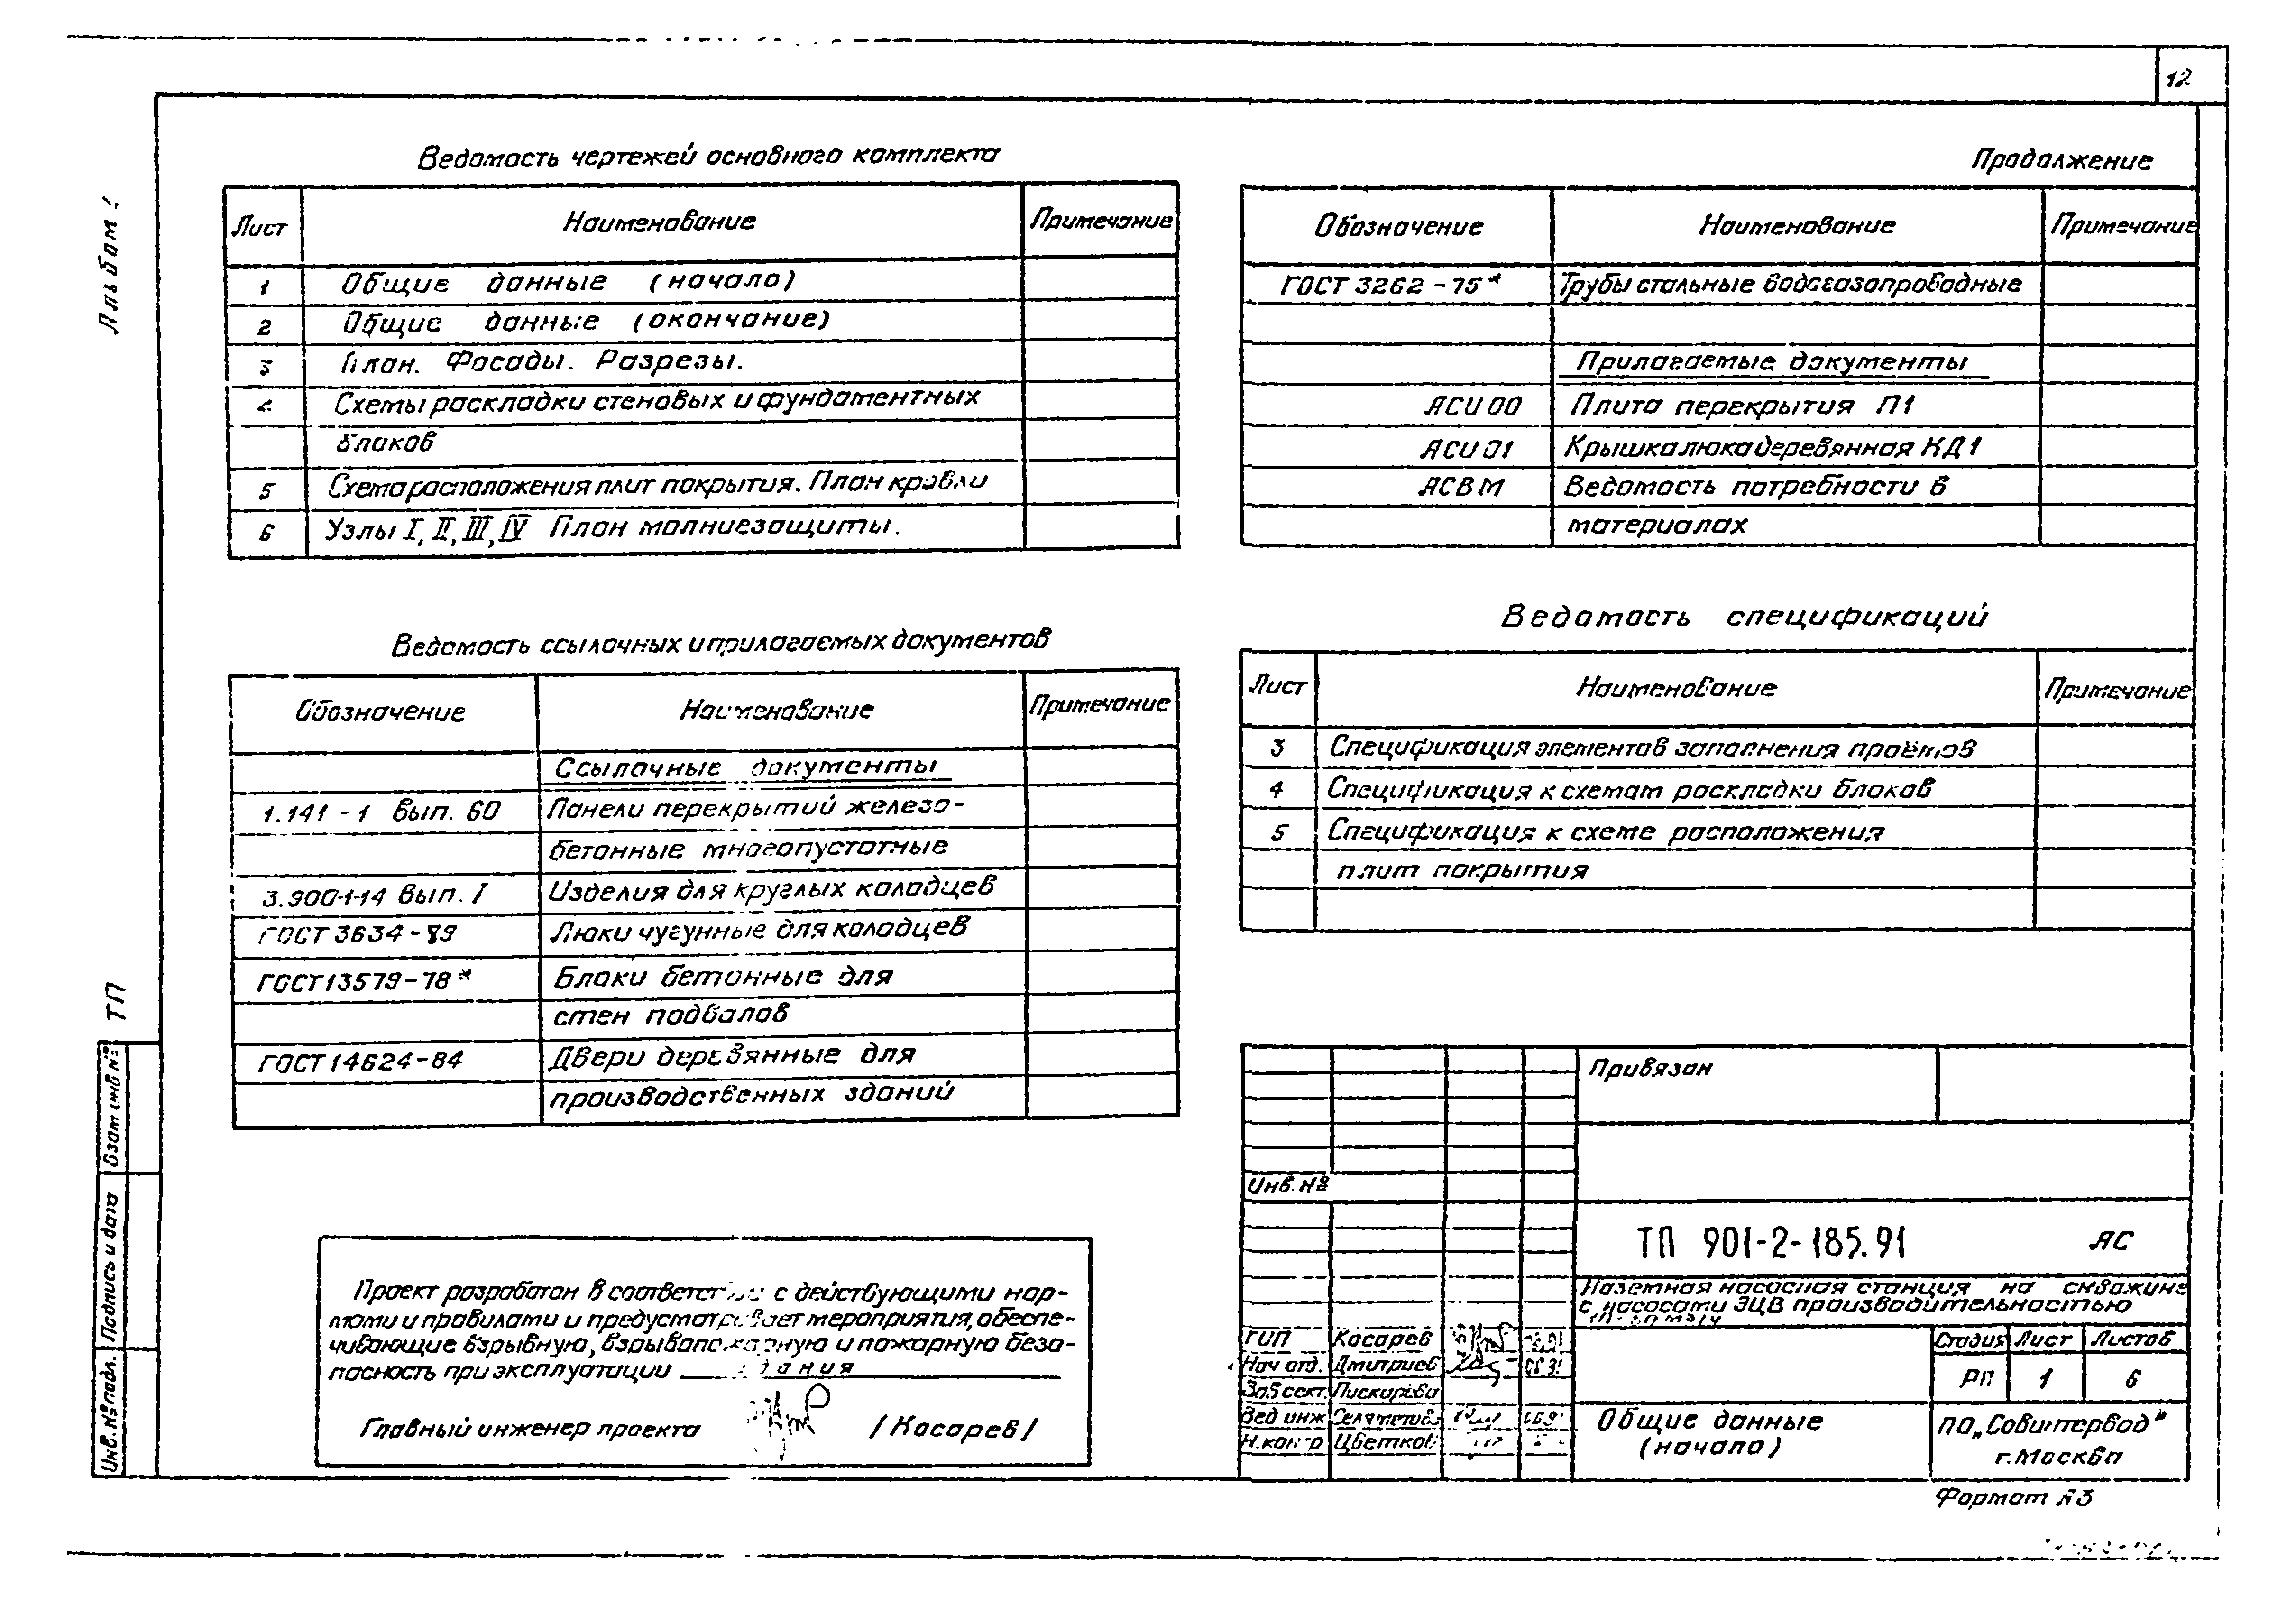 12
Альбом 1
Ведомость чертежей основного комплекта
Лист Наименование Примечание
1 Общие данные (начало)
2 Общие данные (окончание)
3 План. Фасады. Разрезы.
4 Схемы раскладки стеновых и фундаментных
блоков
5 Схема расположения плит покрытия. План кровли
6 Узлы I, II, III, IV План молниезащиты.
Ведомость ссылочных и прилагаемых документов
Обозначение Наименование Примечание
Ссылочные документы
1.141-1 вып. 60 Панели перекрытий железо-
бетонные многопустотные
3.900-1-14 вып. I Изделия для круглых колодцев
ГОСТ 3634-89 Люки чугунные для колодцев
ГОСТ 13579-78* Блоки бетонные для
стен подвалов
ГОСТ 14624-84 Двери деревянные для
производственных зданий
Проект разработан в соответствии с действующими нор-
мами и правилами и предусматривает мероприятия, обеспе-
чивающие взрывную, взрывопожарную и пожарную безо-
пасность при эксплуатации здания
Главный инженер проекта /Косарев/
Продолжение
Обозначение Наименование Примечание
ГОСТ 3262-75* Трубы стальные водогазопроводные
Прилагаемые документы
АСИ 00 Плита перекрытия П1
АСИ 01 Крышка люка деревянная КД1
АСВМ Ведомость потребности в
материалах
Ведомость спецификаций
Лист Наименование Примечание
3 Спецификация элементов заполнения проёмов
4 Спецификация к схемам раскладки блоков
5 Спецификация к схеме расположения
плит покрытия
Привязан
Инв. №
ТП 901-2-185.91 АС
Наземная насосная станция на скважине
с насосами ЭЦВ производительностью
ГИП Косарев
Нач. отд. Дмитриев 06.91
Зав. сект. Пискарёва
Вед. инж.
Н. контр. Цветков
Стадия Лист Листов
РП 1 6
Общие данные
(начало)
ПО „Совинтервод"
г. Москва
Формат А3
ТП
Взам. инв. №
Подпись и дата
Инв. № подл.